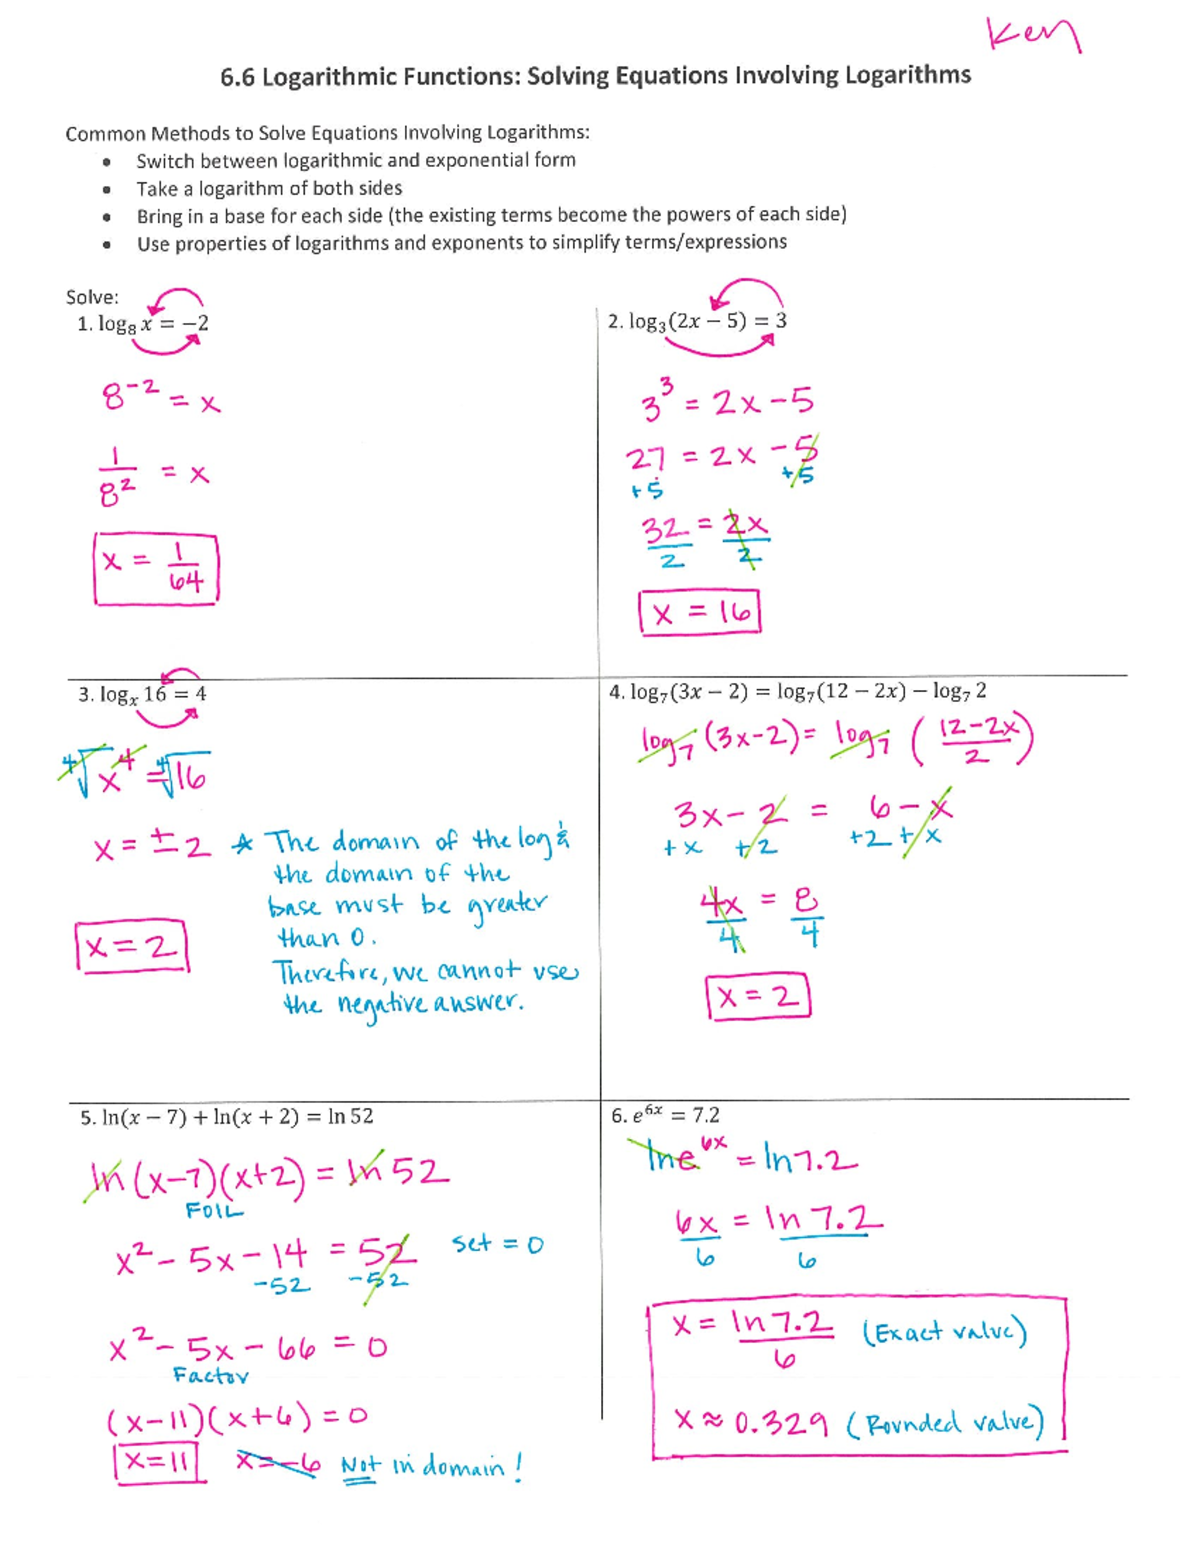 Key
6.6 Logarithmic Functions: Solving Equations Involving Logarithms
Common Methods to Solve Equations Involving Logarithms:
• Switch between logarithmic and exponential form
• Take a logarithm of both sides
• Bring in a base for each side (the existing terms become the powers of each side)
• Use properties of logarithms and exponents to simplify terms/expressions
Solve:
1. log₈ x = −2
8⁻² = x
1/8² = x
x = 1/64
2. log₃(2x − 5) = 3
3³ = 2x − 5
27 = 2x − 5
+5 +5
32/2 = 2x/2
x = 16
3. logₓ 16 = 4
⁴√x⁴ = ⁴√16
x = ± 2
* The domain of the log &
the domain of the
base must be greater
than 0.
Therefore, we cannot use
the negative answer.
x = 2
4. log₇(3x − 2) = log₇(12 − 2x) − log₇ 2
log₇ (3x−2) = log₇ ((12−2x)/2)
3x − 2 = 6 − x
+x +2 +2 +x
4x/4 = 8/4
x = 2
5. ln(x − 7) + ln(x + 2) = ln 52
ln (x−7)(x+2) = ln 52
FOIL
x² − 5x − 14 = 52 set = 0
−52 −52
x² − 5x − 66 = 0
Factor
(x−11)(x+6) = 0
x=11 x=−6 Not in domain!
6. e⁶ˣ = 7.2
ln e⁶ˣ = ln 7.2
6x/6 = ln 7.2/6
x = ln 7.2/6 (Exact value)
x ≈ 0.329 (Rounded value)